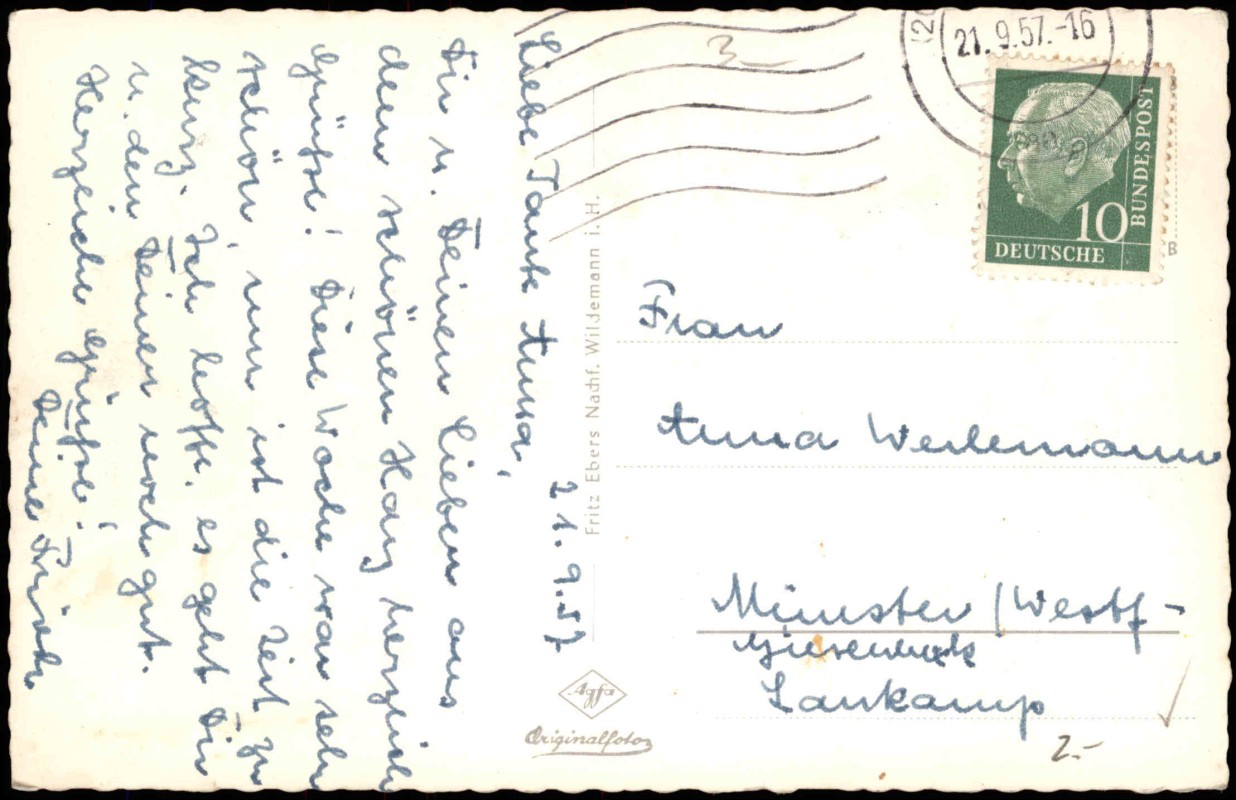 21.9.57
Liebe Tante Anna,
Dir u. Deinen Lieben aus
dem schönen Harz herzliche
Grüsse! Diese Woche war sehr
schön, nun ist die Zeit zu
kurz. Ich hoffe, es geht Dir
u. den Deinen noch gut.
Herzliche Grüsse!
Deine
Fritz Ebers Nachf. Wildemann i. H.
Agfa
Originalfoto
3-
(20
21.9.57.-16
BUNDESPOST
10
DEUTSCHE
B
Frau
Anna
Münster/Westf-
Gievenbeck
Lankamp
2.-